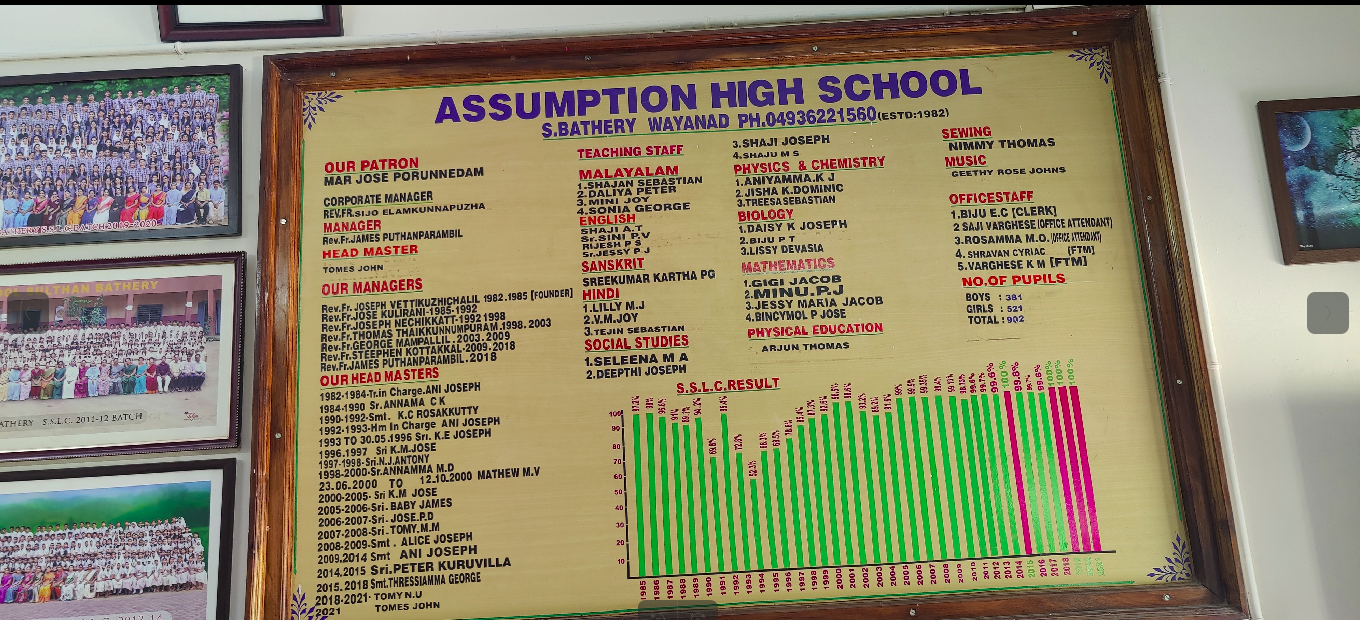 ASSUMPTION HIGH SCHOOL
S.BATHERY WAYANAD PH.04936221560(ESTD:1982)
OUR PATRON
MAR JOSE PORUNNEDAM
CORPORATE MANAGER
REV.FR.SIJO ELAMKUNNAPUZHA
MANAGER
Rev.Fr.JAMES PUTHANPARAMBIL
HEAD MASTER
TOMES JOHN
OUR MANAGERS
Rev.Fr. JOSEPH VETTIKUZHICHALIL 1982.1985 [FOUNDER]
Rev.Fr. JOSE KULIRANI-1985-1992
Rev.Fr.JOSEPH NECHIKKATT-1992 1998
Rev.Fr.THOMAS THAIKKUNNUMPURAM.1998. 2003
Rev.Fr.GEORGE MAMPALLIL. 2003.2009
Rev.Fr.STEEPHEN KOTTAKKAL-2009.2018
Rev.Fr.JAMES PUTHANPARAMBIL.2018
OUR HEAD MASTERS
1982-1984-Tr.in Charge.ANI JOSEPH
1984-1990 Sr.ANNAMA C K
1990-1992-Smt. K.C ROSAKKUTTY
1992-1993-Hm In Charge ANI JOSEPH
1993 TO 30.05.1996 Sri. K.E JOSEPH
1996.1997 Sri K.M.JOSE
1997-1998-Sri.N.J.ANTONY
1998-2000-Sr.ANNAMMA M.D
23.06.2000 TO 12.10.2000 MATHEW M.V
2000-2005- Sri K.M JOSE
2005-2006-Sri.BABY JAMES
2006-2007-Sri. JOSE.P.D
2007-2008-Sri.TOMY.M.M
2008-2009-Smt . ALICE JOSEPH
2009.2014 Smt ANI JOSEPH
2014.2015 Sri.PETER KURUVILLA
2015.2018 Smt.THRESSIAMMA GEORGE
2018-2021- TOMY N.U
2021 TOMES JOHN
TEACHING STAFF
MALAYALAM
1.SHAJAN SEBASTIAN
2.DALIYA PETER
3.MINI JOY
4.SONIA GEORGE
ENGLISH
SHAJI A.T
Sr.SINI P.V
RIJESH P S
Sr.JESSY P.J
SANSKRIT
SREEKUMAR KARTHA PG
HINDI
1.LILLY M.J
2.V.M.JOY
3.TEJIN SEBASTIAN
SOCIAL STUDIES
1.SELEENA M A
2.DEEPTHI JOSEPH
3.SHAJI JOSEPH
4.SHAJU M S
PHYSICS & CHEMISTRY
1.ANIYAMMA.K J
2.JISHA K.DOMINIC
3.TREESA SEBASTIAN
BIOLOGY
1.DAISY K JOSEPH
2.BIJU P T
3.LISSY DEVASIA
MATHEMATICS
1.GIGI JACOB
2.MINU.P.J
3.JESSY MARIA JACOB
4.BINCYMOL P JOSE
PHYSICAL EDUCATION
ARJUN THOMAS
SEWING
NIMMY THOMAS
MUSIC
GEETHY ROSE JOHNS
OFFICESTAFF
1.BIJU E.C [CLERK]
2 SAJI VARGHESE (OFFICE ATTENDANT)
3.ROSAMMA M.O. (OFFICE ATTENDANT)
4. SHRAVAN CYRIAC (FTM)
5.VARGHESE K M [FTM]
NO.OF PUPILS
BOYS : 381
GIRLS : 521
TOTAL : 902
S.S.L.C.RESULT
100
90
80
70
60
50
40
30
20
10
1985 1986 1987 1988 1989 1990 1991 1992 1993 1994 1995 1996 1997 1998 1999 2000 2001 2002 2003 2004 2005 2006 2007 2008 2009 2010 2011 2012 2013 2014 2015 2016 2017 2018
SULTHAN BATHERY
S.S.L.C. 2011-12 BATCH